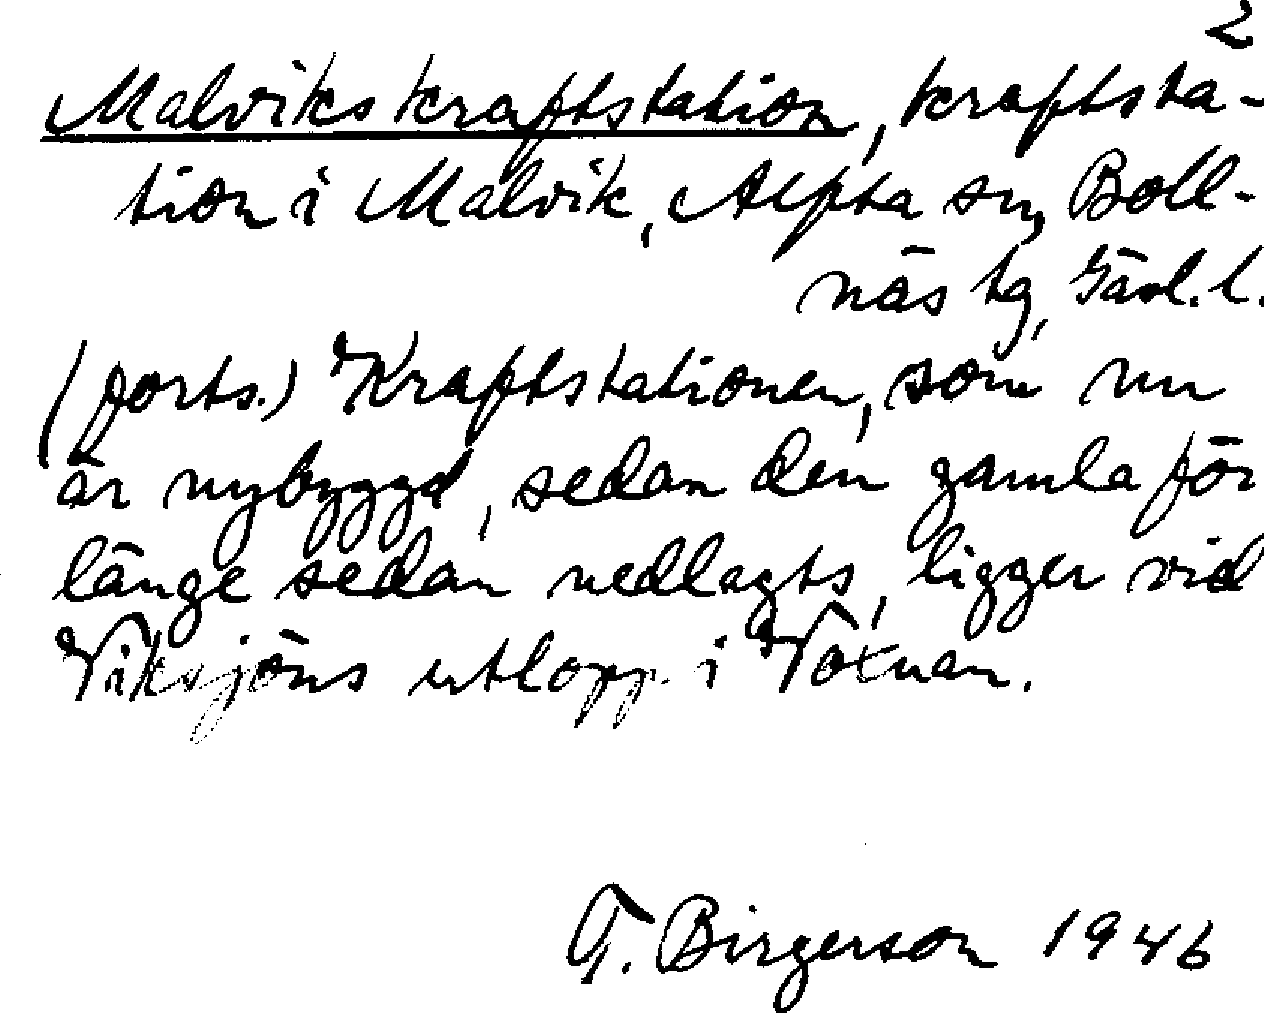 2
Malviks kraftstation, kraftsta-
tion i Malvik, Alfta sn, Boll-
näs tg, Gävl. l.
(forts.) Kraftstationen, som nu
är nybyggd, sedan den gamla för
länge sedan nedlagts, ligger vid
Viksjöns utlopp i Voxnan.
T. Birgerson 1946